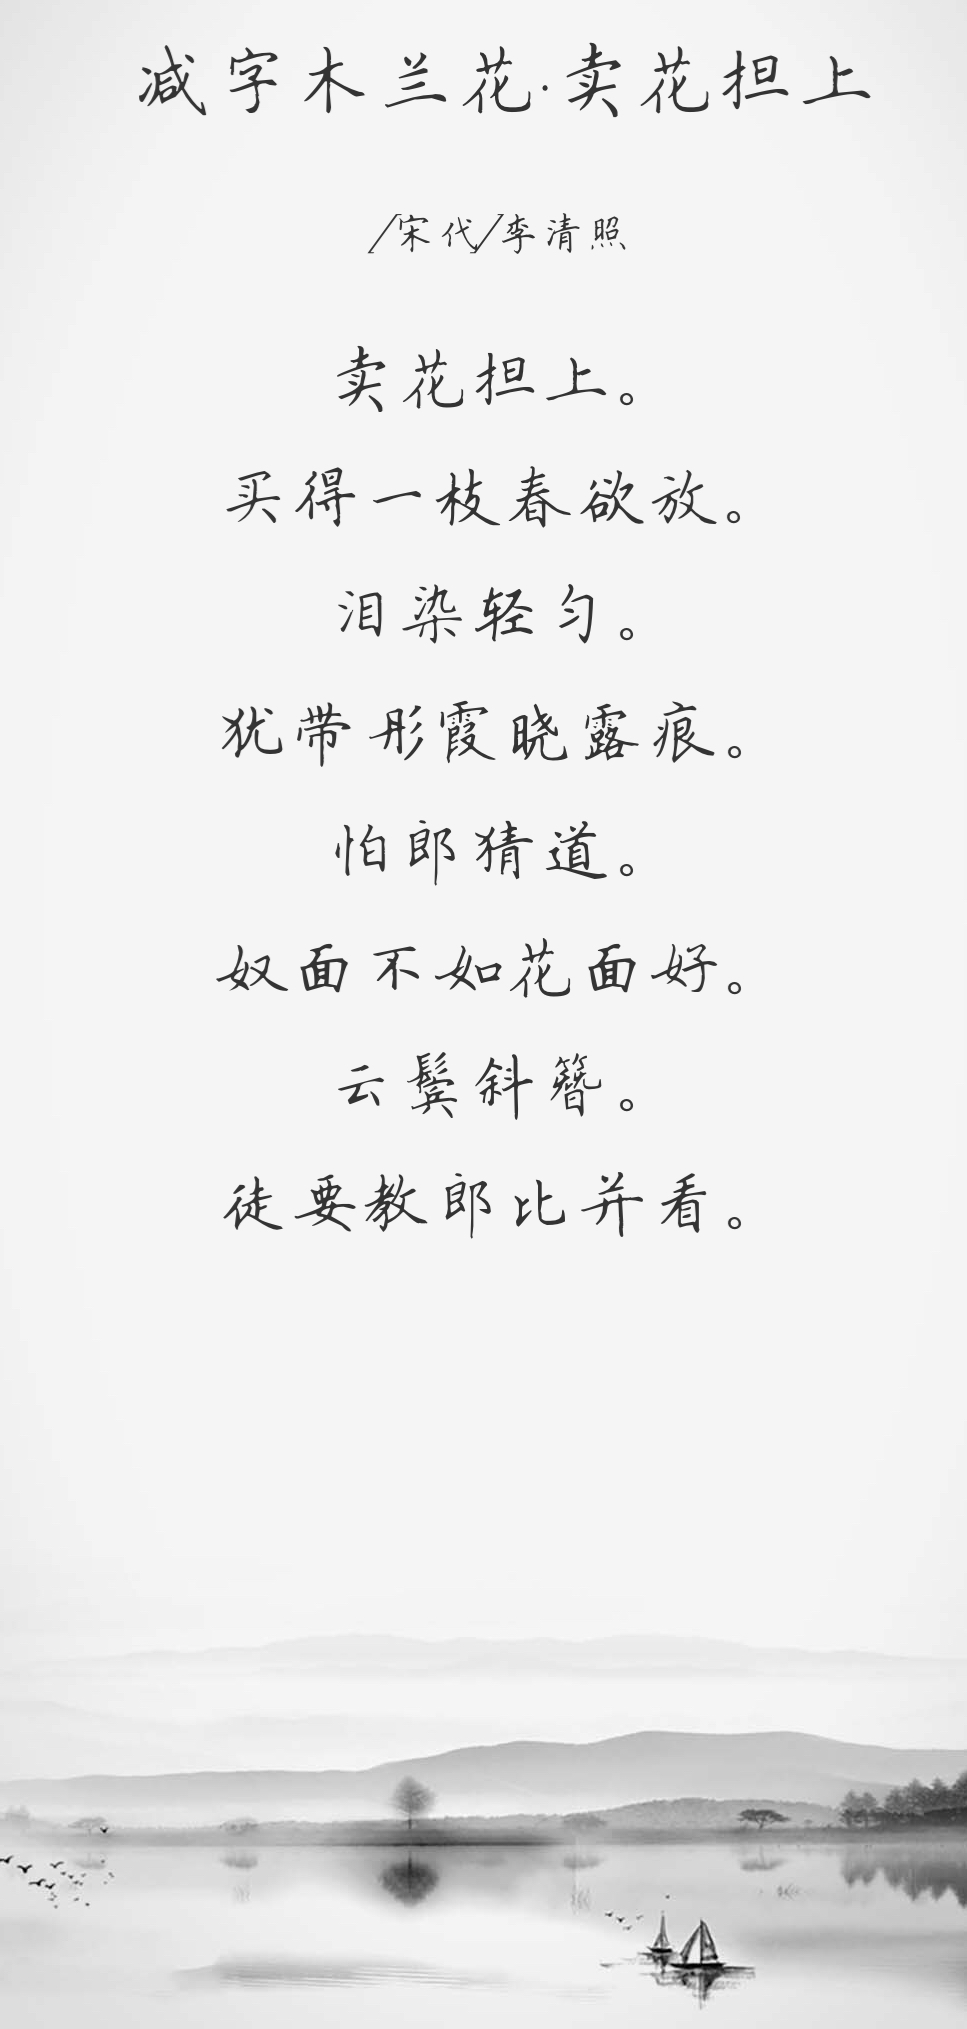 减字木兰花·卖花担上
/宋代/李清照
卖花担上。
买得一枝春欲放。
泪染轻匀。
犹带彤霞晓露痕。
怕郎猜道。
奴面不如花面好。
云鬓斜簪。
徒要教郎比并看。